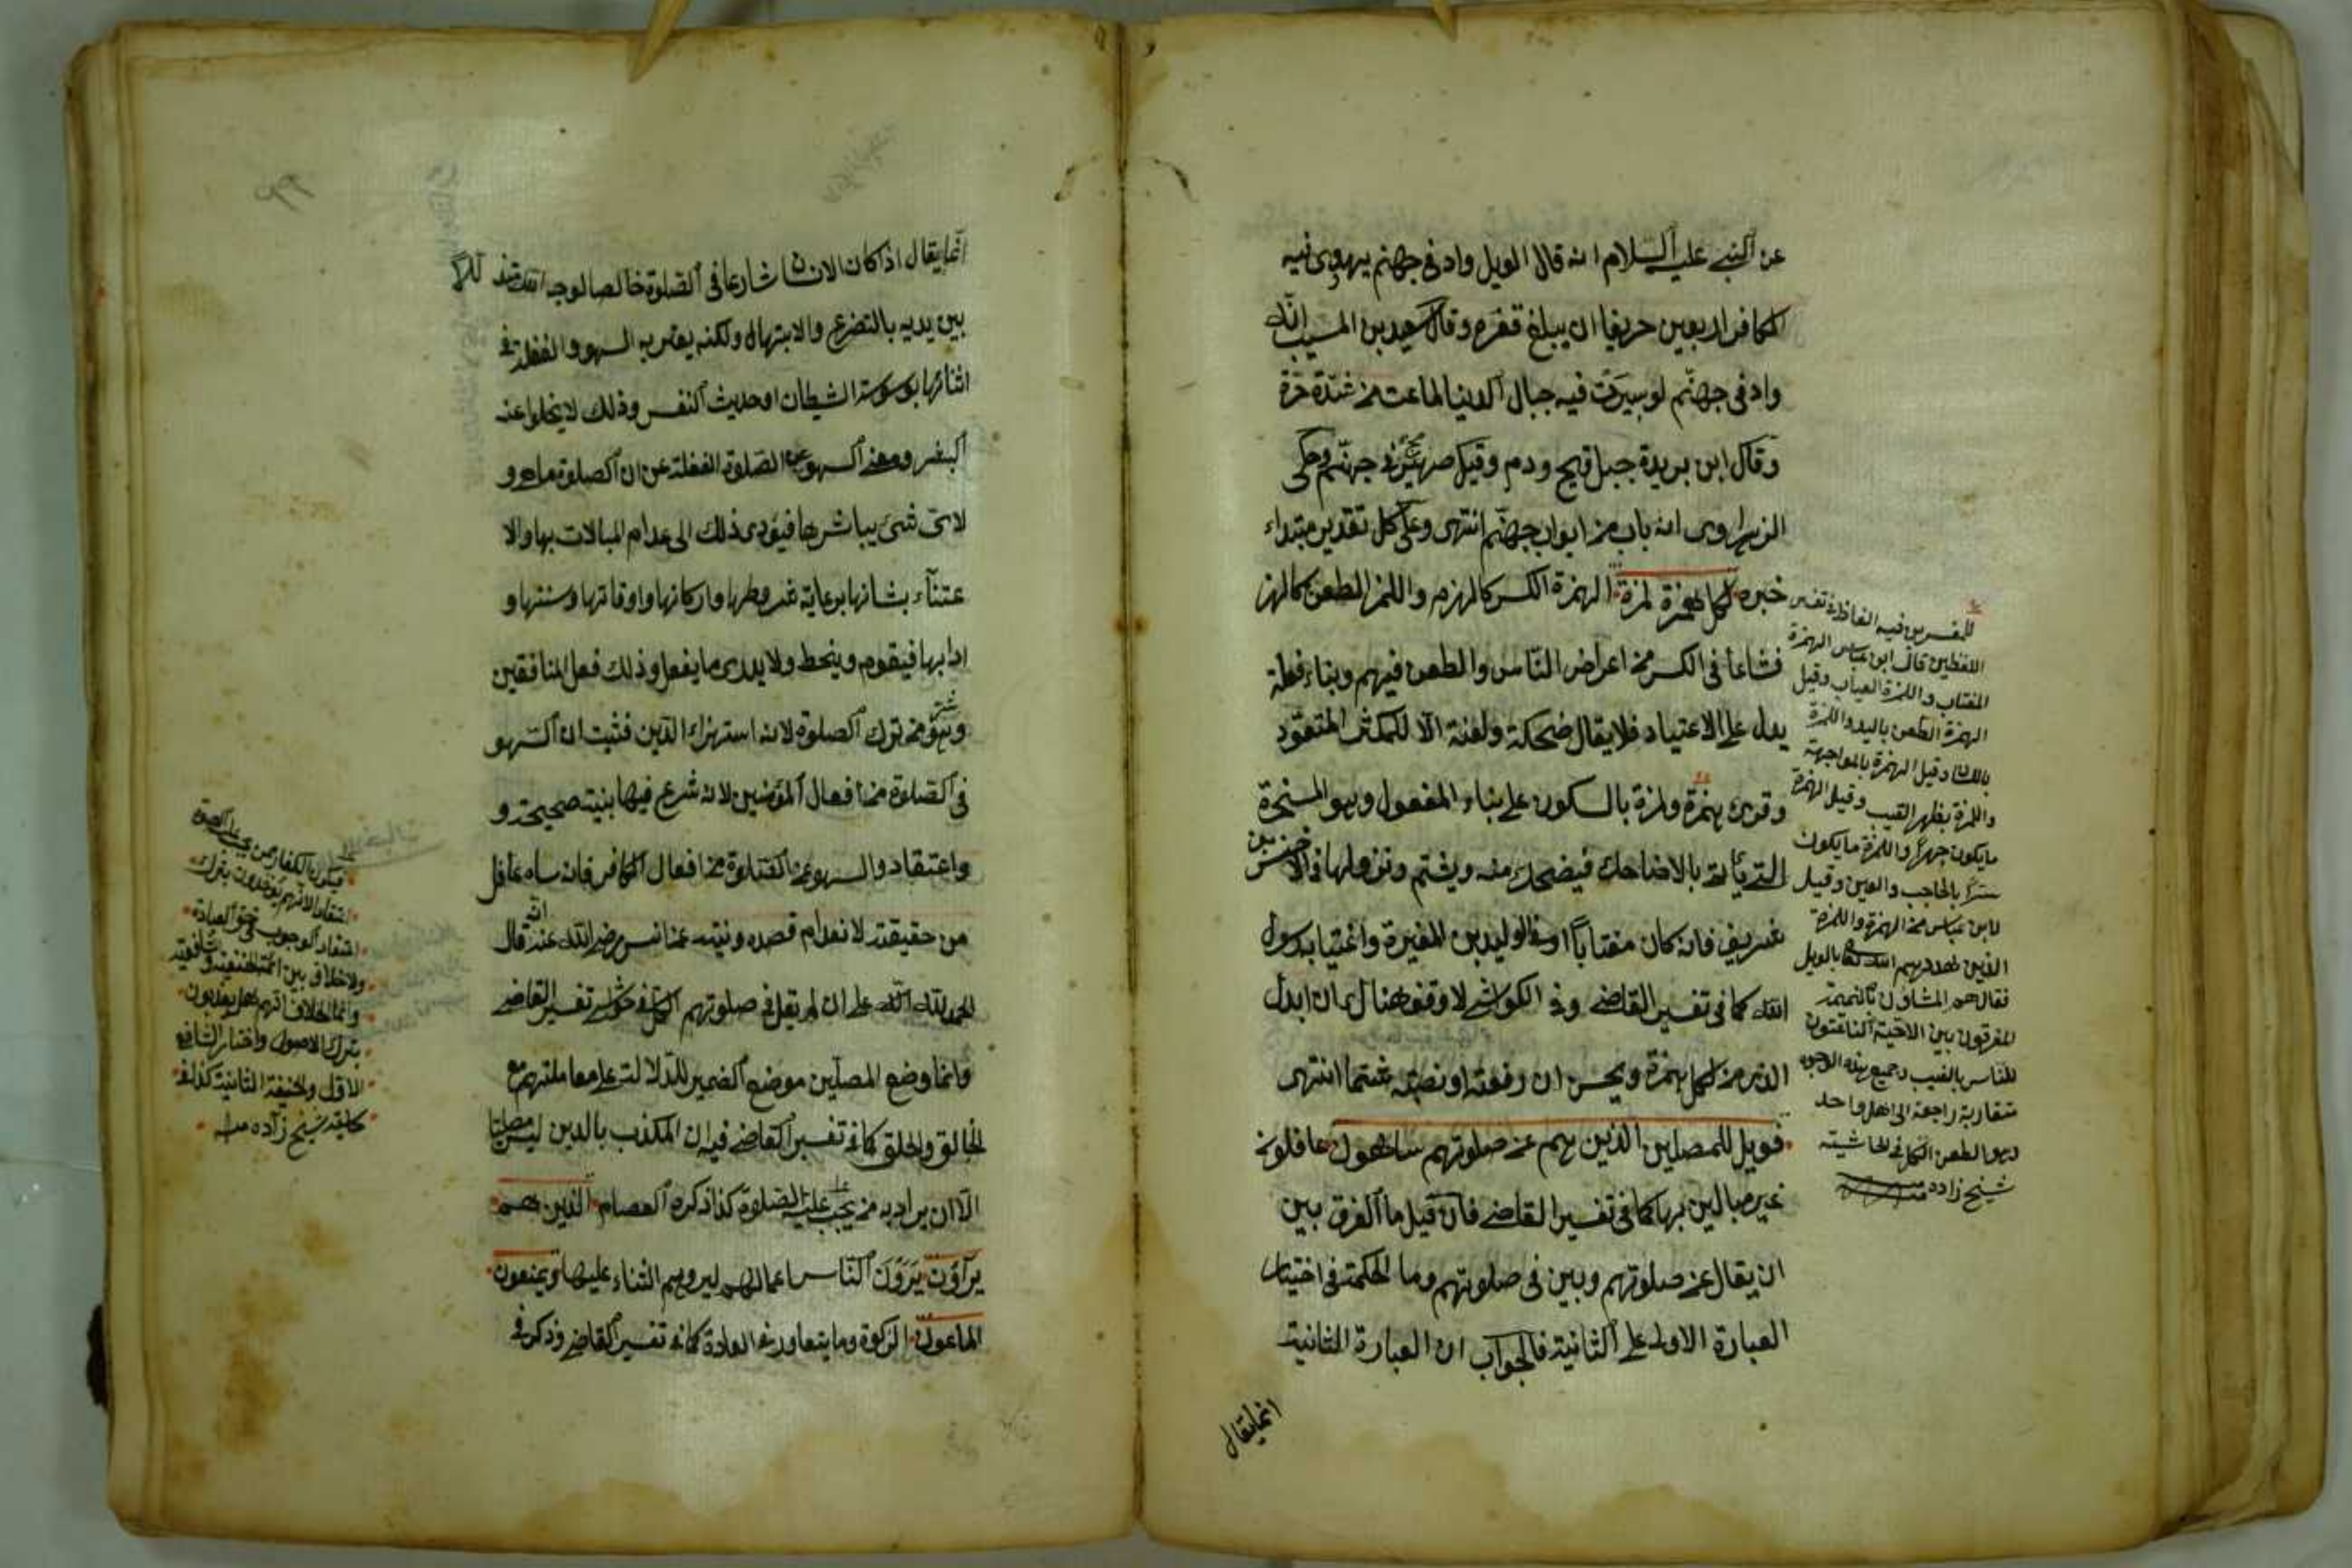 عن النبي عليه السلام انه قال الويل واد في جهنم يهوى فيه
الكافر اربعين خريفا ان يبلغ قعره وقال سعيد بن المسيب انه
واد في جهنم لو سيرت فيه جبال الدنيا لماعت من شدة حره
وقال ابن بريدة جبل قيح ودم وقيل صهريج في جهنم وحكى
الزهراوى انه باب من ابواب جهنم انتهى وعلى كل تقدير مبتداء
خبره لكل همزة لمزة الهمزة الكسر كالهزم واللمز الطعن كالهز
فشاعا في الكسر من اعراض الناس والطعن فيهم وبناء فعلة
يدل على الاعتياد فلا يقال ضحكة ولعنة الا للمكثر المتعود
وقرئ همزة ولمزة بالسكون على بناء المفعول وهو المسخرة
الذي يأتى بالاضاحك فيضحك منه ويشتم ونزولها في الاخنس بن
شريف فانه كان مغتابا او في الوليد بن المغيرة واغتيابه رسول
الله كما في تفسير القاضى وفي الكواشى لا وقف هنا ان ابدل
الذى من كل همزة ويحسن ان رفعته او نصبته شتما انتهى
فويل للمصلين الذين هم عن صلوتهم ساهون غافلون
غير مبالين بها كما في تفسير القاضى فان قيل ما الفرق بين
ان يقال عن صلوتهم وبين في صلوتهم وما الحكمة في اختيار
العبارة الاولى على الثانية فالجواب ان العبارة الثانية
انما يقال
للمفسرين فيه الفاظ في تفسير
اللفظين قال ابن عباس الهمزة
المغتاب واللمزة العياب وقيل
الهمزة الطعن باليد واللمزة
باللسان وقيل الهمزة بالمواجهة
واللمزة بظهر الغيب وقيل الهمزة
ما يكون جهرا واللمزة ما يكون
سترا بالحاجب والعين وقيل
لابن عباس من الهمزة واللمزة
الذين هددهم الله تعالى بالويل
فقال هم المشاؤن بالنميمة
المفرقون بين الاحبة الناعتون
للناس بالغيب وجميع هذه الوجوه
متقاربة راجعة الى اصل واحد
وهو الطعن كما في الحاشية
شيخ زاده
انما يقال اذا كان الانسان شارعا في الصلوة خالصا لوجه الله
بين يديه بالتضرع والابتهال ولكنه يعتريه السهو والغفلة في
اثنائها بوسوسة الشيطان او حديث النفس وذلك لا يخلوا عنه
البشر ومعنى السهو عن الصلوة الغفلة عن ان الصلوة ما هى و
لاى شئ يباشرها فيؤدى ذلك الى عدم المبالات بها والا
عتناء بشانها برعاية شروطها واركانها واوقاتها وسننها و
ادابها فيقوم وينحط ولا يدرى ما يفعل وذلك فعل المنافقين
وهو شر من ترك الصلوة لانه استهزاء الدين فثبت ان السهو
في الصلوة من افعال المؤمنين لانه شرع فيها بنية صحيحة و
واعتقاد والسهو عن الصلوة من افعال الكافر فانه ساه غافل
من حقيقته لانعدام قصده ونيته عن انس رضى الله عنه قال
الحمد لله على ان لم يقل في صلوتهم الكل في حواشى تفسير القاضى
وانما وضع المصلين موضع الضمير للدلالة على معاملتهم مع
الخالق والخلق كما في تفسير القاضى فيه ان المكذب بالدين ليس مصليا
الا ان يراد به من يجب عليه الصلوة كذا ذكره العصام الذين هم
يرآؤن يرون الناس اعمالهم ليروهم الثناء عليها ويمنعون
الماعون الزكوة وما يتعاور في العادة كما في تفسير القاضى وذكر في
اعتقاد الوجوب في حق العبادة
ولا خلاف بين ائمة الحنفية والشافعية
وانما الخلاف انهم هل يعذبون
بترك الاصول واختار الشافعى
الاول والحنفية الثانية كذا في
حاشية شيخ زاده